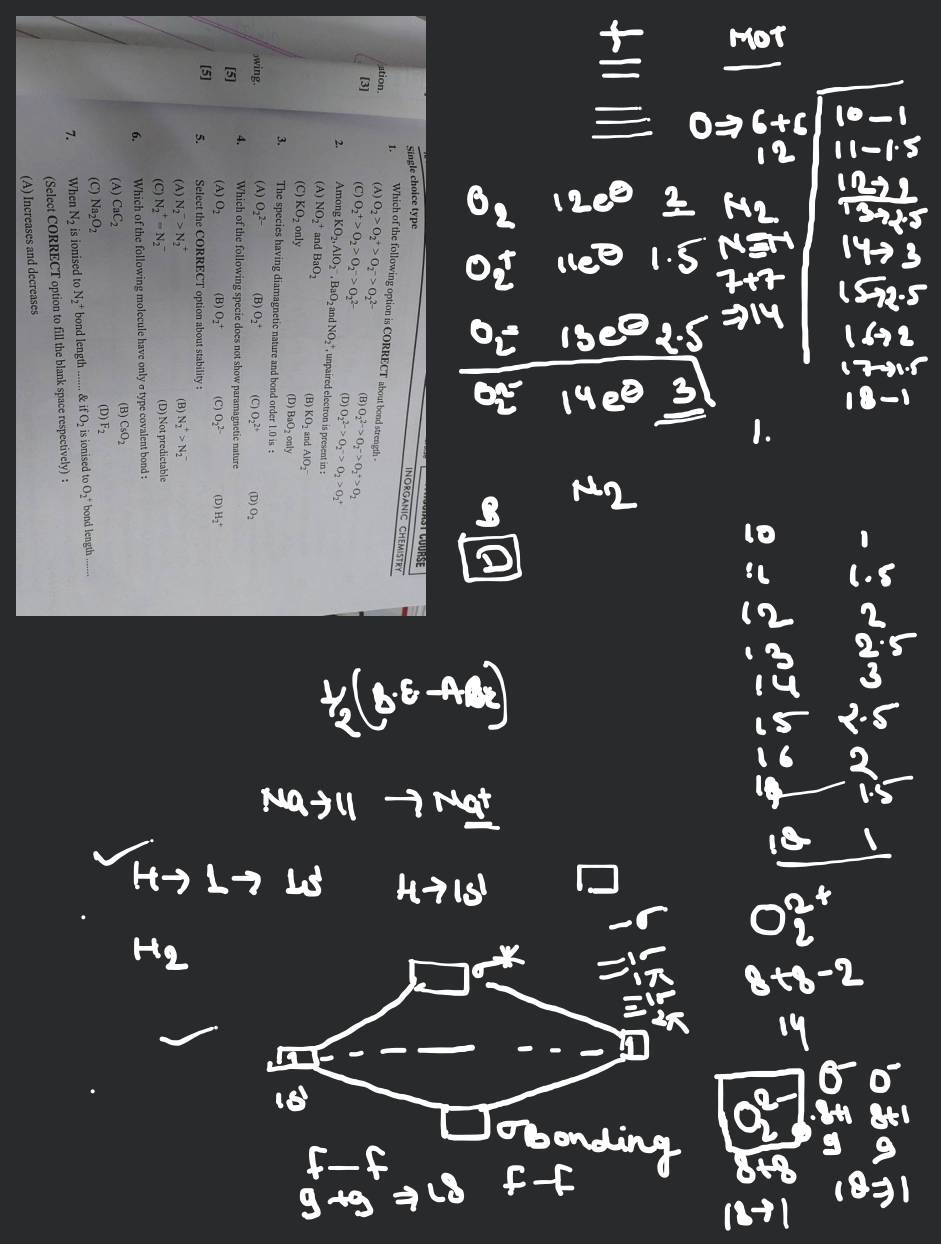 INORGANIC CHEMISTRY
Single choice type
1. Which of the following option is CORRECT about bond strength -
(A) O₂ > O₂⁺ > O₂⁻ > O₂²⁻
(B) O₂²⁻ > O₂⁻ > O₂⁺ > O₂
(C) O₂⁺ > O₂ > O₂⁻ > O₂²⁻
(D) O₂²⁻ > O₂⁻ > O₂ > O₂⁺
2. Among KO₂, AlO₂⁻, BaO₂ and NO₂⁺, unpaired electron is present in :
(A) NO₂⁺ and BaO₂
(B) KO₂ and AlO₂⁻
(C) KO₂ only
(D) BaO₂ only
3. The species having diamagnetic nature and bond order 1.0 is :
(A) O₂²⁻
(B) O₂⁺
(C) O₂²⁺
(D) O₂
4. Which of the following specie does not show paramagnetic nature
(A) O₂
(B) O₂⁺
(C) O₂²⁻
(D) H₂⁺
5. Select the CORRECT option about stability :
(A) N₂⁻ > N₂⁺
(B) N₂⁺ > N₂⁻
(C) N₂⁺ = N₂⁻
(D) Not predictable
6. Which of the following molecule have only σ type covalent bond :
(A) CaC₂
(B) CsO₂
(C) Na₂O₂
(D) F₂
7. When N₂ is ionised to N₂⁺ bond length ....... & if O₂ is ionised to O₂⁺ bond length .......
(Select CORRECT option to fill the blank space respectively) :
(A) Increases and decreases
ation.
[3]
owing.
[5]
[5]
MOT
O⇒6+6
12
O₂ 12e⊖ 2
O₂⁺ 11e⊖ 1.5
13e⊖ 2.5
14e⊖ 3
N₂
N≡N
7+7
⇒14
10-1
11-1.5
12→2
13→2.5
14→3
15→2.5
16→2
17→1.5
18-1
1.
N₂
B
D
10 1
11 1.5
12 2
13 2.5
14 3
15 2.5
16 2
1.5
18 1
½(B.E-ABE)
Na→11 → Na⁺
H→1→1s¹
H→1s¹
H₂
σ*
1s¹
1
1
σ bonding
-σ
=1σ
1π
≡1σ
2π
F-F
9+9⇒18
F-F
O₂²⁺
8+8-2
14
O₂²⁻
8+8
18→1
O⁻ O⁻
8+1 8+1
9 9
18⇒1